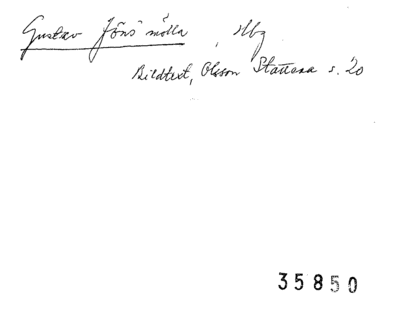 Gustav Jöns mölla, Hbg
Bildtext, Olsson Stattena s. 20
35850